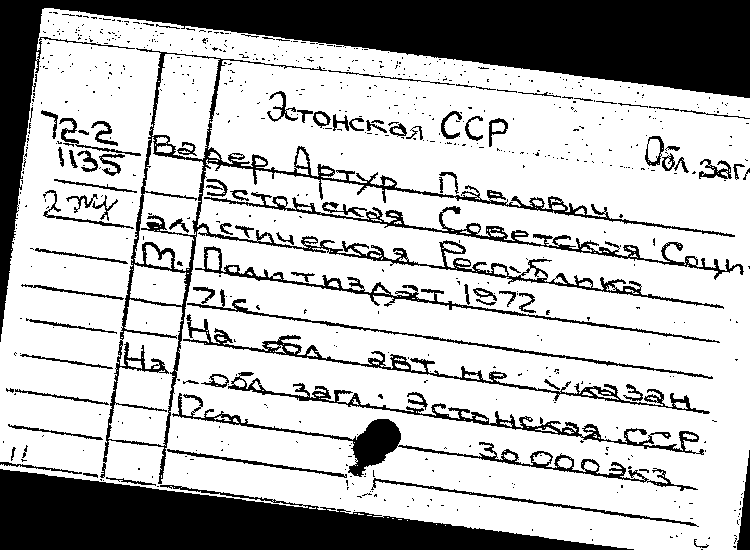 Эстонская ССР Обл. загл.
72-2
1135
2 эку
Вадер, Артур Павлович.
Эстонская Советская Соци-
алистическая Республика
М. Политиздат, 1972.
71 с.
На обл. авт. не указан
На обл загл.: Эстонская ССР.
17см. 30 000 экз.
11